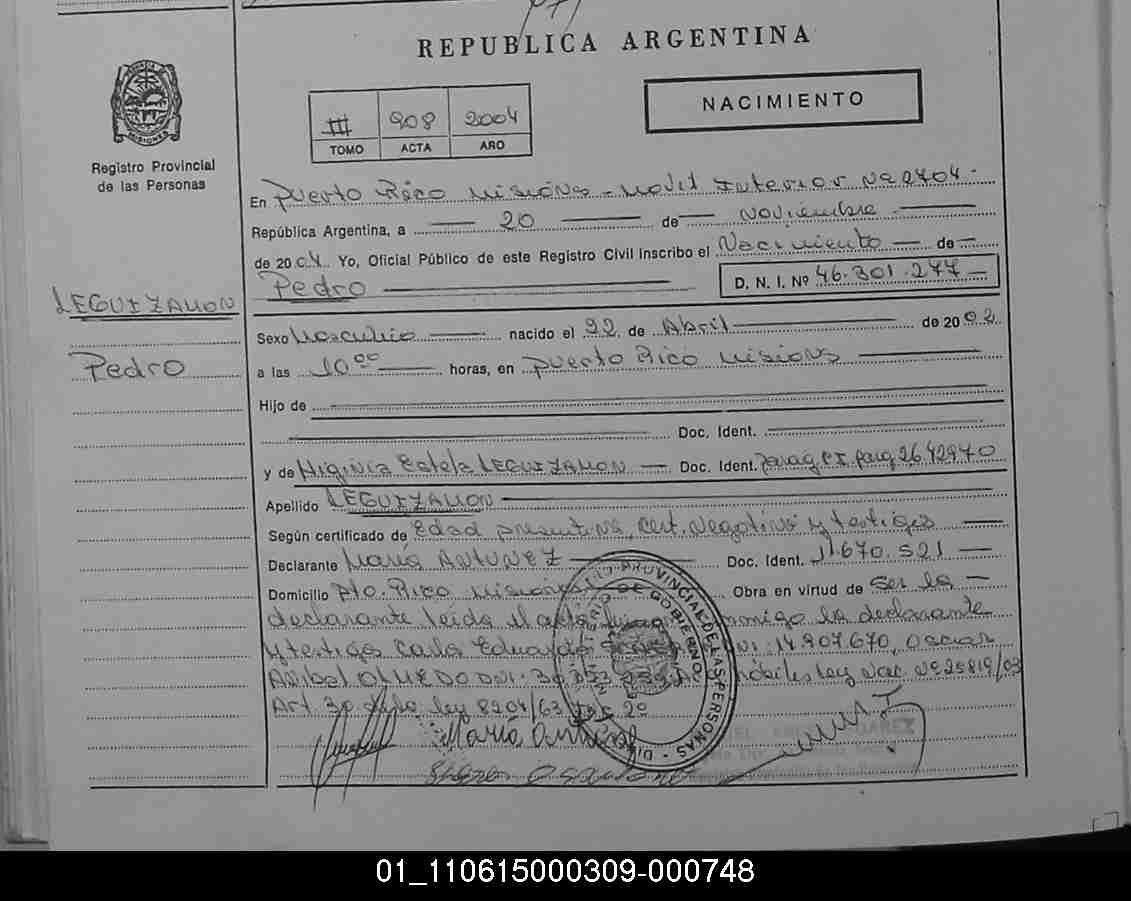 REPUBLICA ARGENTINA
Registro Provincial
de las Personas
III 908 2004
TOMO ACTA AÑO
NACIMIENTO
En Puerto Rico Misiones - Movil Interior Nº 2404 -
República Argentina, a 20 de Noviembre
de 2004 Yo, Oficial Público de este Registro Civil Inscribo el Nacimiento de
Pedro D. N. I. Nº 46.301.277
LEGUIZAMON
Pedro
Sexo Masculino nacido el 22 de Abril de 2002
a las 10 00 horas, en Puerto Rico Misions
Hijo de
Doc. Ident.
y de Higinia Estela LEGUIZAMON Doc. Ident. parag 2642970
Apellido LEGUIZAMON
Según certificado de Edad presuntiva, Cert. Negativo y testigos
Declarante María ANTUNEZ Doc. Ident. 11.670.521
Domicilio Pto. Rico Misiones Obra en virtud de Ser la
declarante leída el acta conmigo la declarante
y testigos Carlos Eduardo DNI: 14.907.670, Oscar
Anibal OLMEDO DNI. Ley Nac. Nº 25819/03
Art. 3o Ley 8204/63
María Antunez
PROVINCIAL DE LAS PERSONAS
DE GOBIERNO
01_110615000309-000748